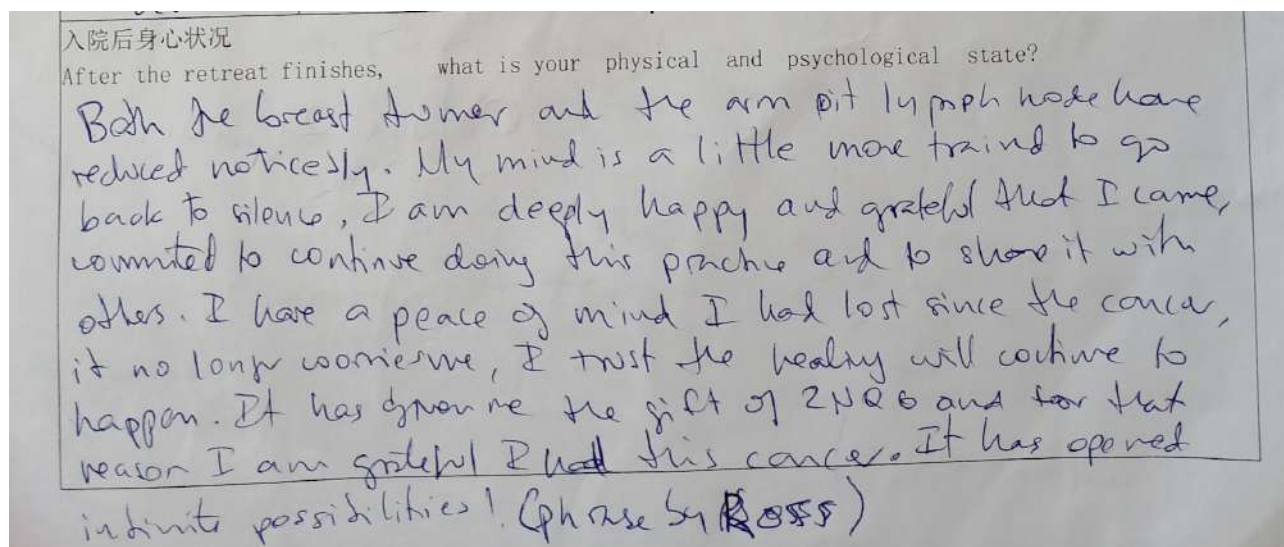 入院后身心状况
After the retreat finishes, what is your physical and psychological state?
Both the breast tumer and the arm pit lymph node have
reduced noticesly. My mind is a little more traind to go
back to silence, I am deeply happy and grateful that I came,
commited to continue doing this practice and to share it with
others. I have a peace of mind I had lost since the cancer,
it no longer worries me, I trust the healing will continue to
happen. It has given me the gift of ZNQG and for that
reason I am grateful I had this cancer. It has opened
infinite possibilities! (phrase by Ross)